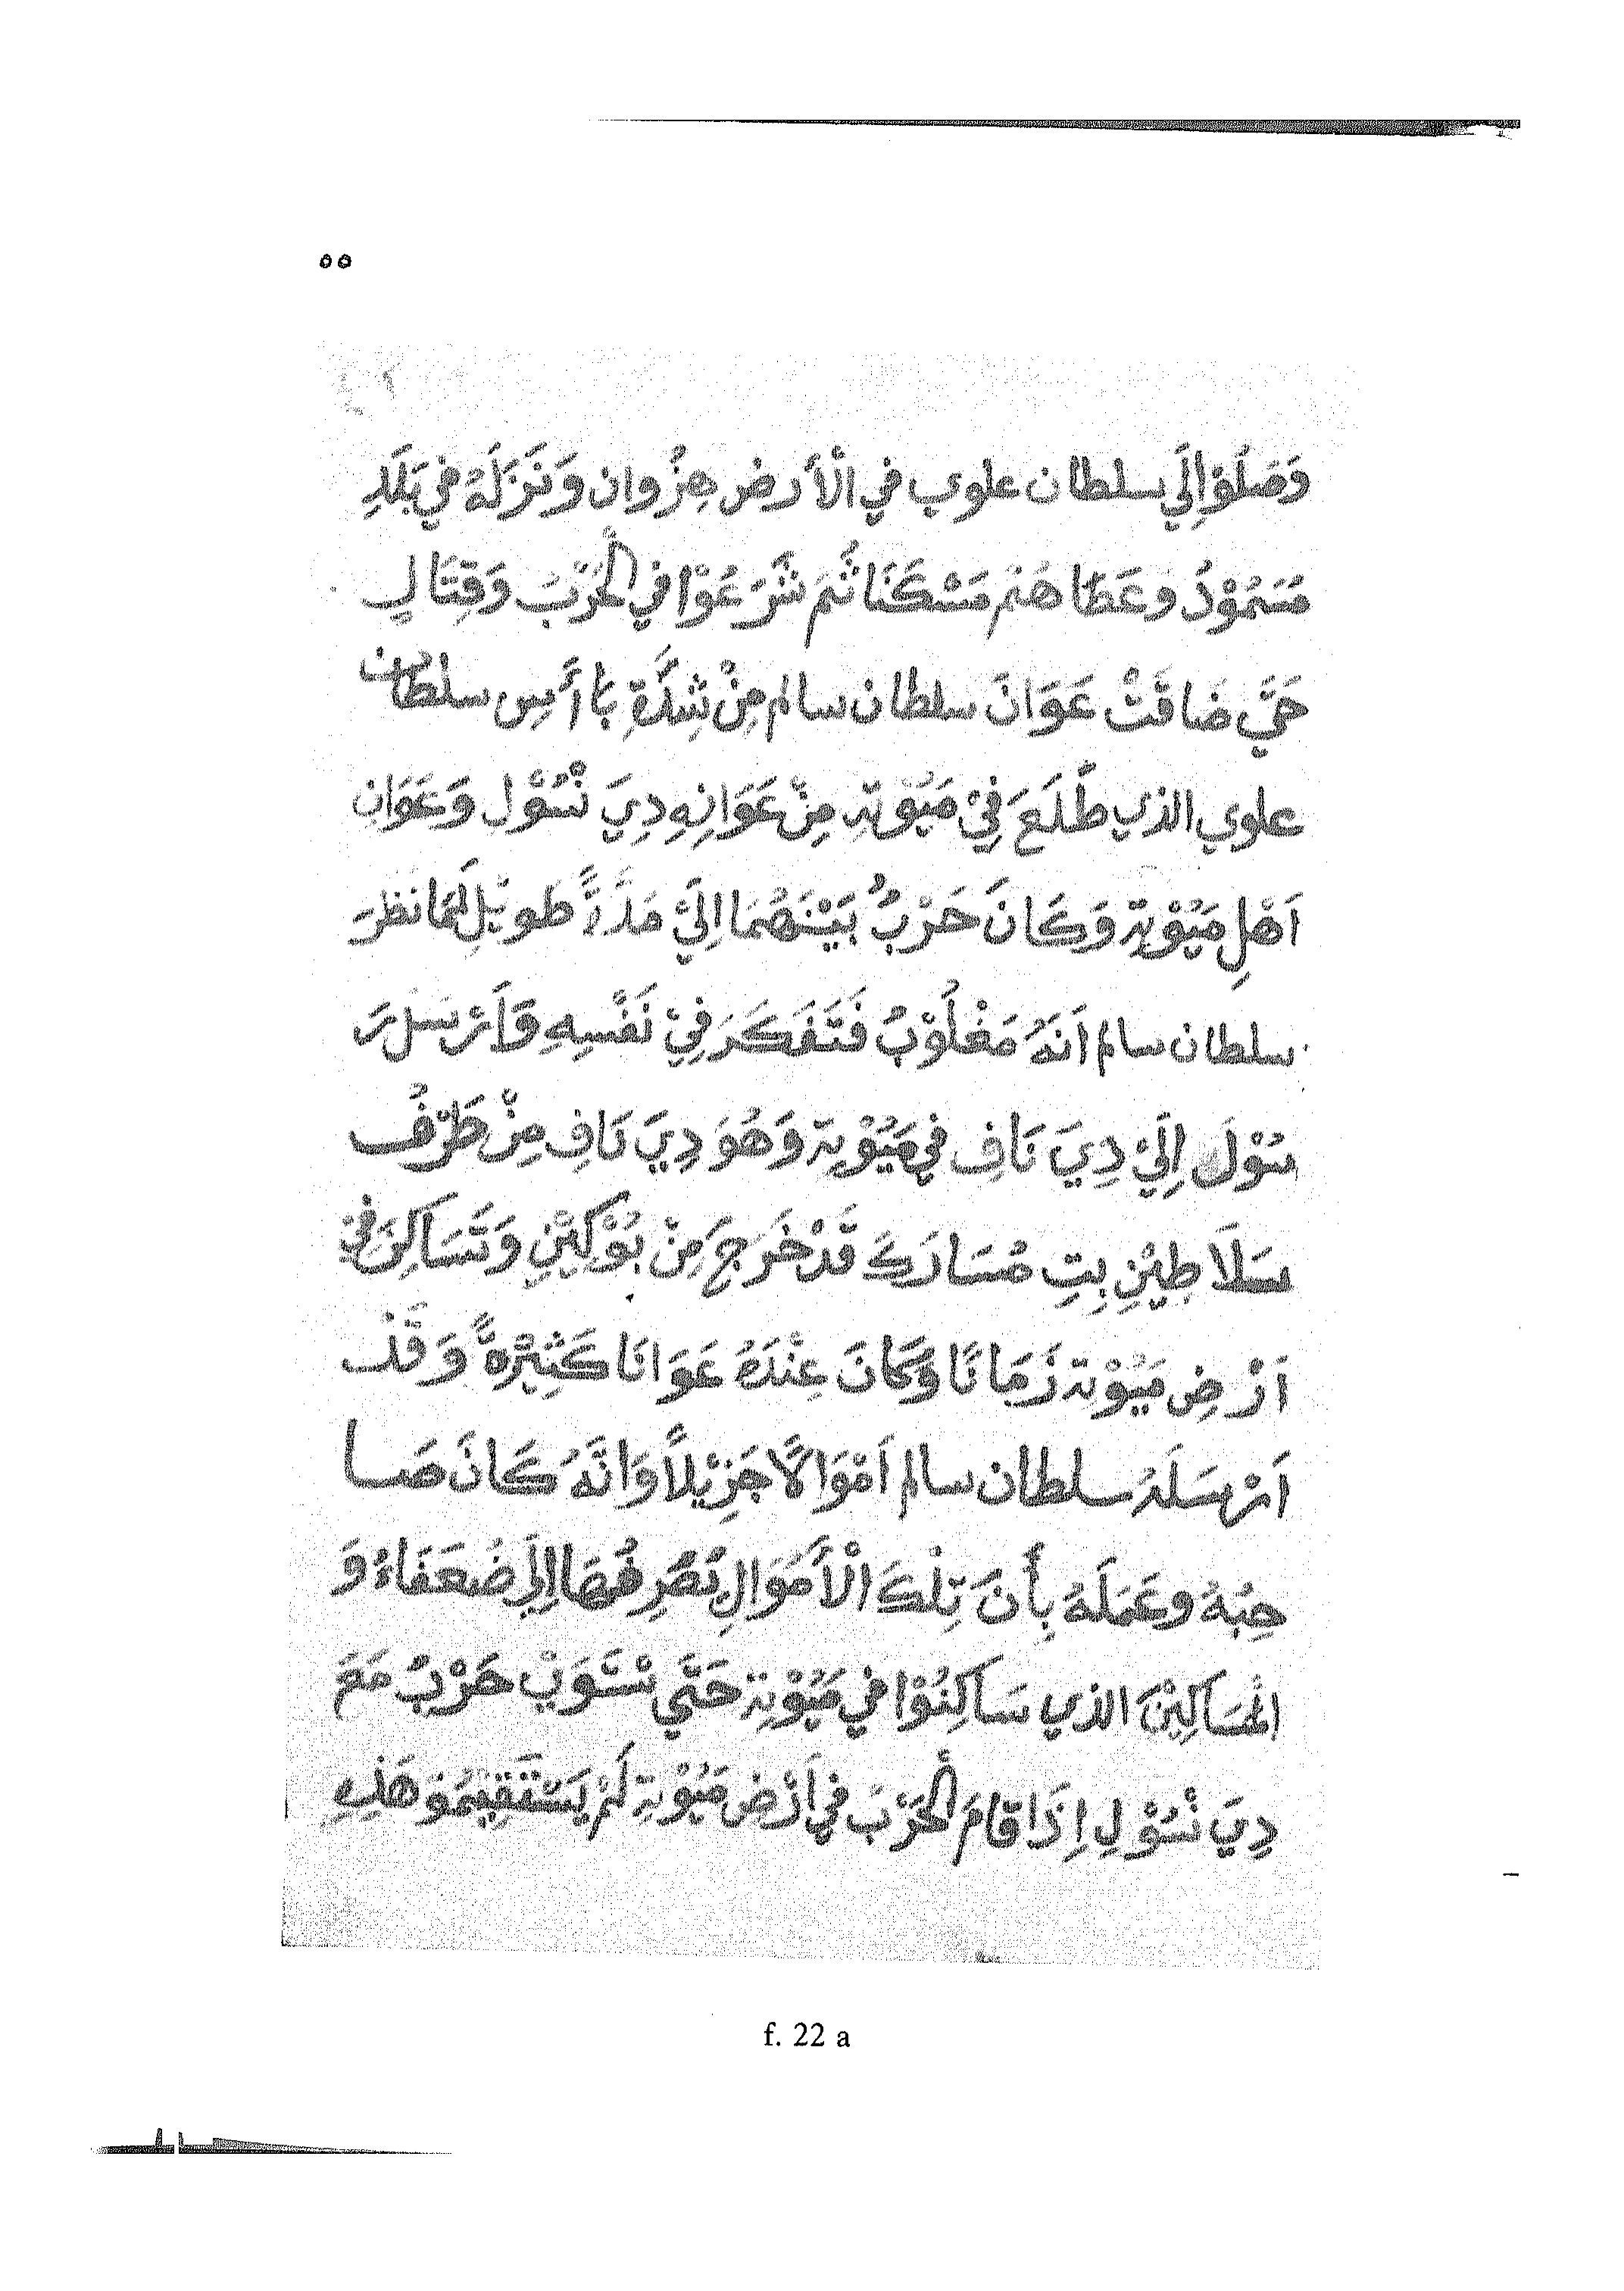 ٥٥
وَصَلُوْ اِلَي سلطان علوي في الْأَرض هِنْزُوان وَنَزَلَهُ في بَلَدِ
مُسَمُوْدُ وَعَطَاهُمْ مَسْكَنَا ثُمَ شَرَعُوْا في الْحَرْبَ وَقِتَالِ
حَتَّي ضَاقَتْ عَوَانَ سلطان سالم مِنْ شِدَّةِ بَاأَسِ سلطان
علوي الذي طَلَعَ فِيْ مَيُوْتَةِ مِنْ عَوَانِهِ دِيَ نْسُوْلِ وَعَوَانِ
اَهْلِ مَيُوْتَةِ وَكَانَ حَرْبُ بَيْنَهُمَا اِلَيْ مَدَّةً طويْلِ لَمَا نظرَ
سلطان سالم اَنَهُ مَغْلُوْبُ فَتَفَكَرَ فِيْ نَفْسِهِ وَاَرْسَلَ رَ
سُوْلَ اِلَيْ دِيَ نَافِ في مَيُوْتَةِ وَهُوَ دِيَ نَافِ مِنْ طَرْفُ
سَلَاطِيْنِ بِتِ مُسَارَكَ قَدْ خَرَجَ مِنْ بُوْكِيْنِ وَتَسَاكِنَ في
اَرْضِ مَيُوْتَة زَمَانًا وَكَانَ عِنْدَهُ عَوَانَا كَثِيْرَةً وَقَدْ
اَرْسَلَهُ سلطان سالم اَمْوَالًا جَزِيْلًا وَانَّهُ كَانَ صَا
حِبُهُ وعَمَلَهُ بِأَنَ تِلْكَ الْأَمْوَالِ نُصْرِفُهَا اِلَي ضُعَفَاءُ وَ
الْمَسَاكِيْنَ الذي سَاكِنُوْا في مَيُوْتَةِ حَتَّي نْسَوِيْ حَرْبُ مَعَ
دِيَ نْسُوْلِ اِذَا قَامَ الْحَرْبَ في اَرْضِ مَيُوْتَةِ لَمْ يَسْتَقِيْمُوْ هَذِهِ
f. 22 a